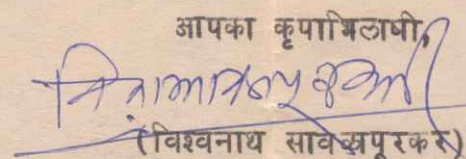 आपका कृपाभिलाषी,
(विश्वनाथ सावळापूरकर)